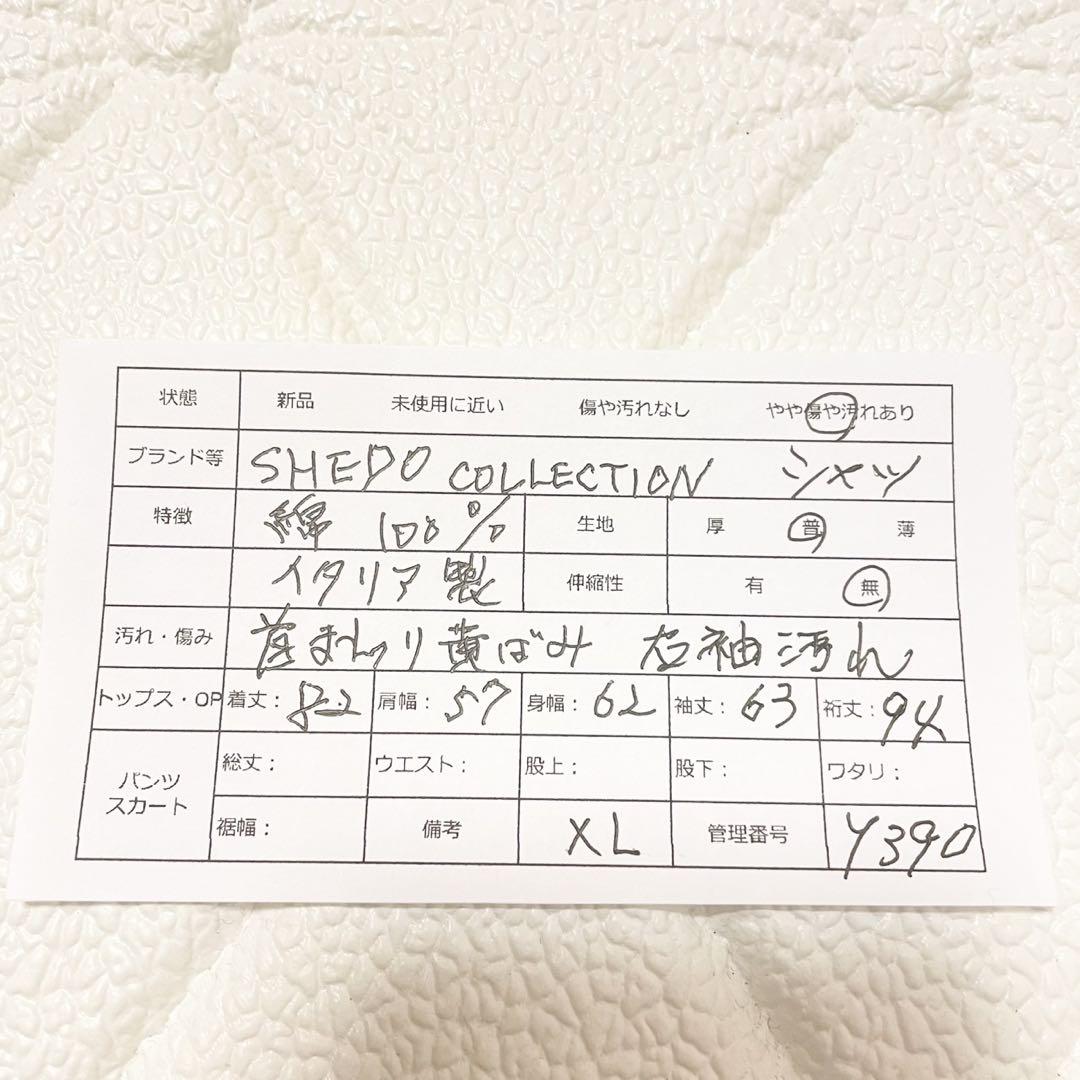 状態 新品 未使用に近い 傷や汚れなし やや傷や汚れあり
ブランド等 SHEDO COLLECTION シャツ
特徴 綿 100% 生地 厚 普 薄
イタリア製 伸縮性 有 無
汚れ・傷み 首まわり黄ばみ 左袖汚れ
トップス・OP 着丈：82 肩幅：57 身幅：62 袖丈：63 裄丈：94
パンツ スカート 総丈： ウエスト： 股上： 股下： ワタリ：
裾幅： 備考 XL 管理番号 Y390